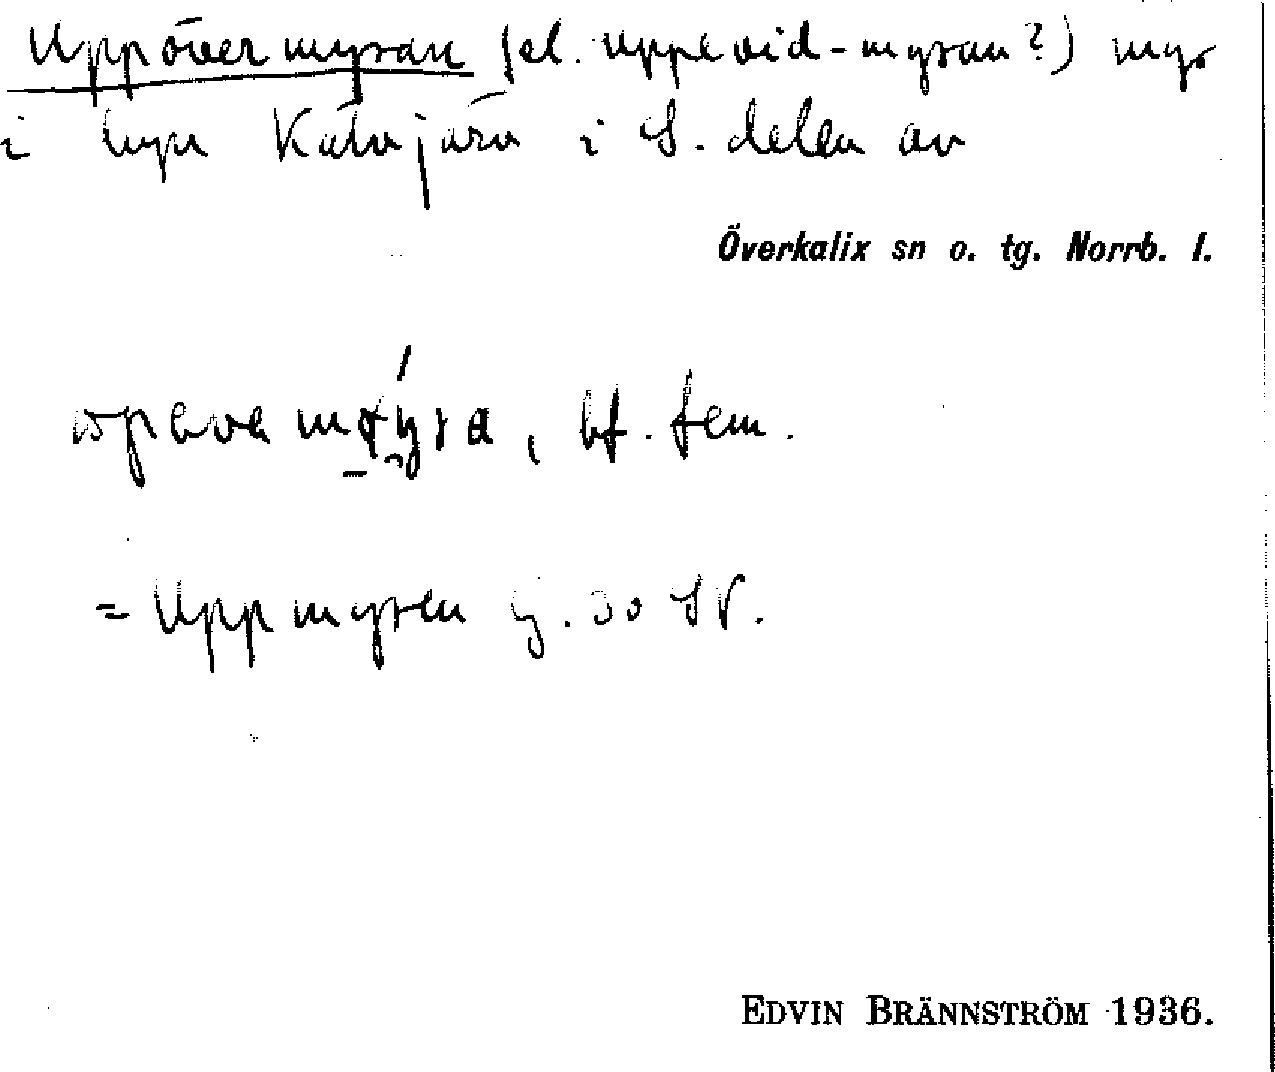 Uppövermyran (el. uppevid-myran?) myr
i byn Kälvjärv i S. delen av
Överkalix sn o. tg. Norrb. l.
bf. fem.
= Uppmyren g. 30 SV.
EDVIN BRÄNNSTRÖM 1936.